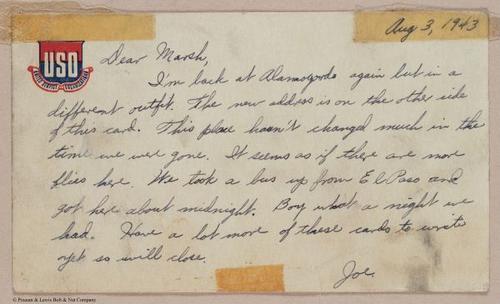 Aug 3, 1943
USO
UNITED SERVICE ORGANIZATIONS
Dear Marsh,
I'm back at Alamogordo again but in a
different outfit. The new address is on the other side
of this card. This place hasn't changed much in the
time we were gone. It seems as if there are more
flies here. We took a bus up from El Paso and
got here about midnight. Boy what a night we
had. Have a lot more of these cards to write
yet so will close.
Joe
© Pinaun & Lewis Bolt & Nut Company